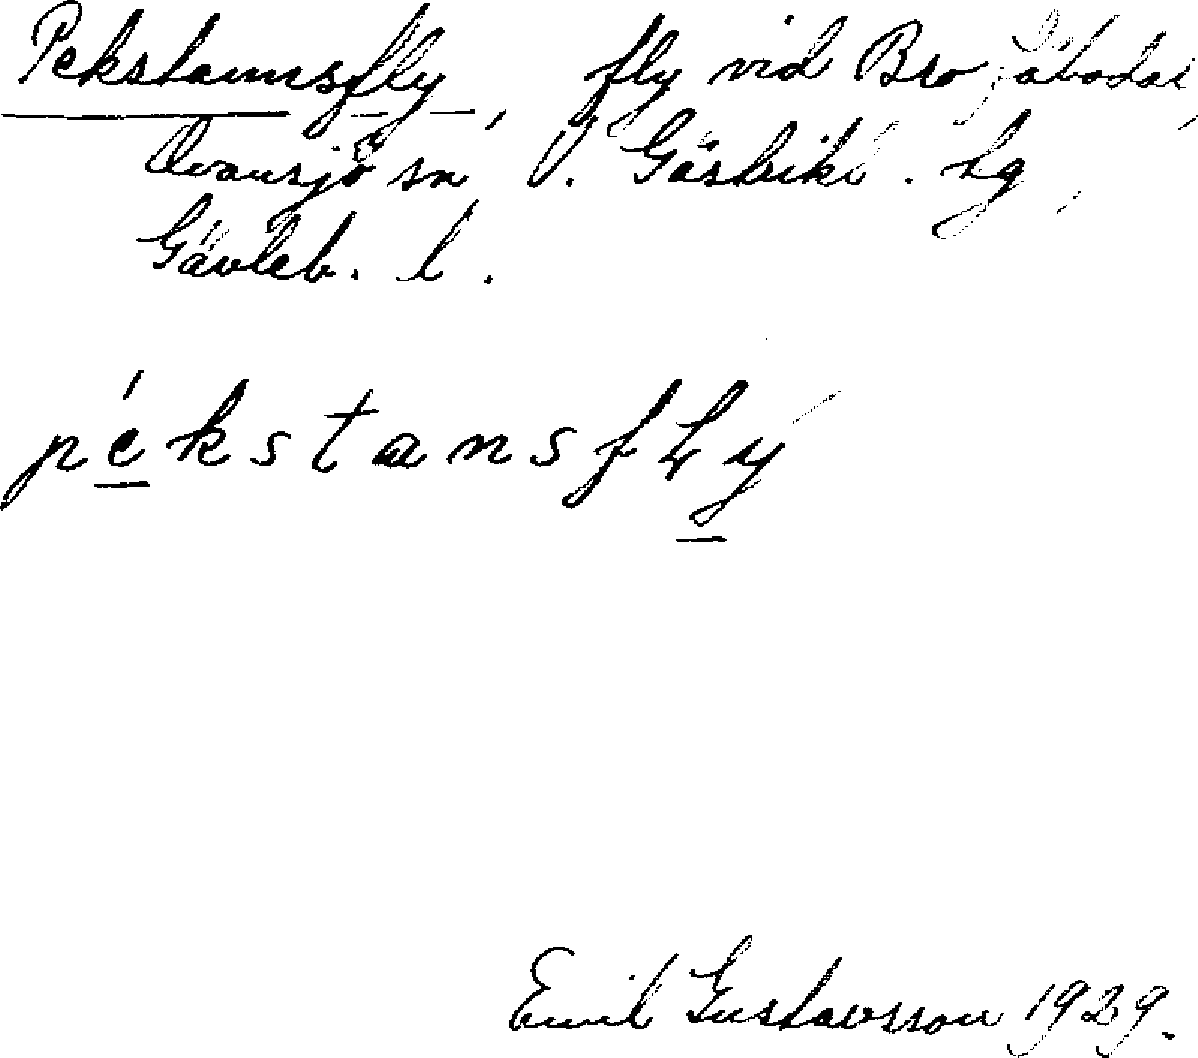 Pekstannsfly, fly vid Bro fäbodar,
Ovansjö sn V. Gästrikl. hg,
Gävleb. l.
pékstansfLy
Emil Gustavsson 1929.